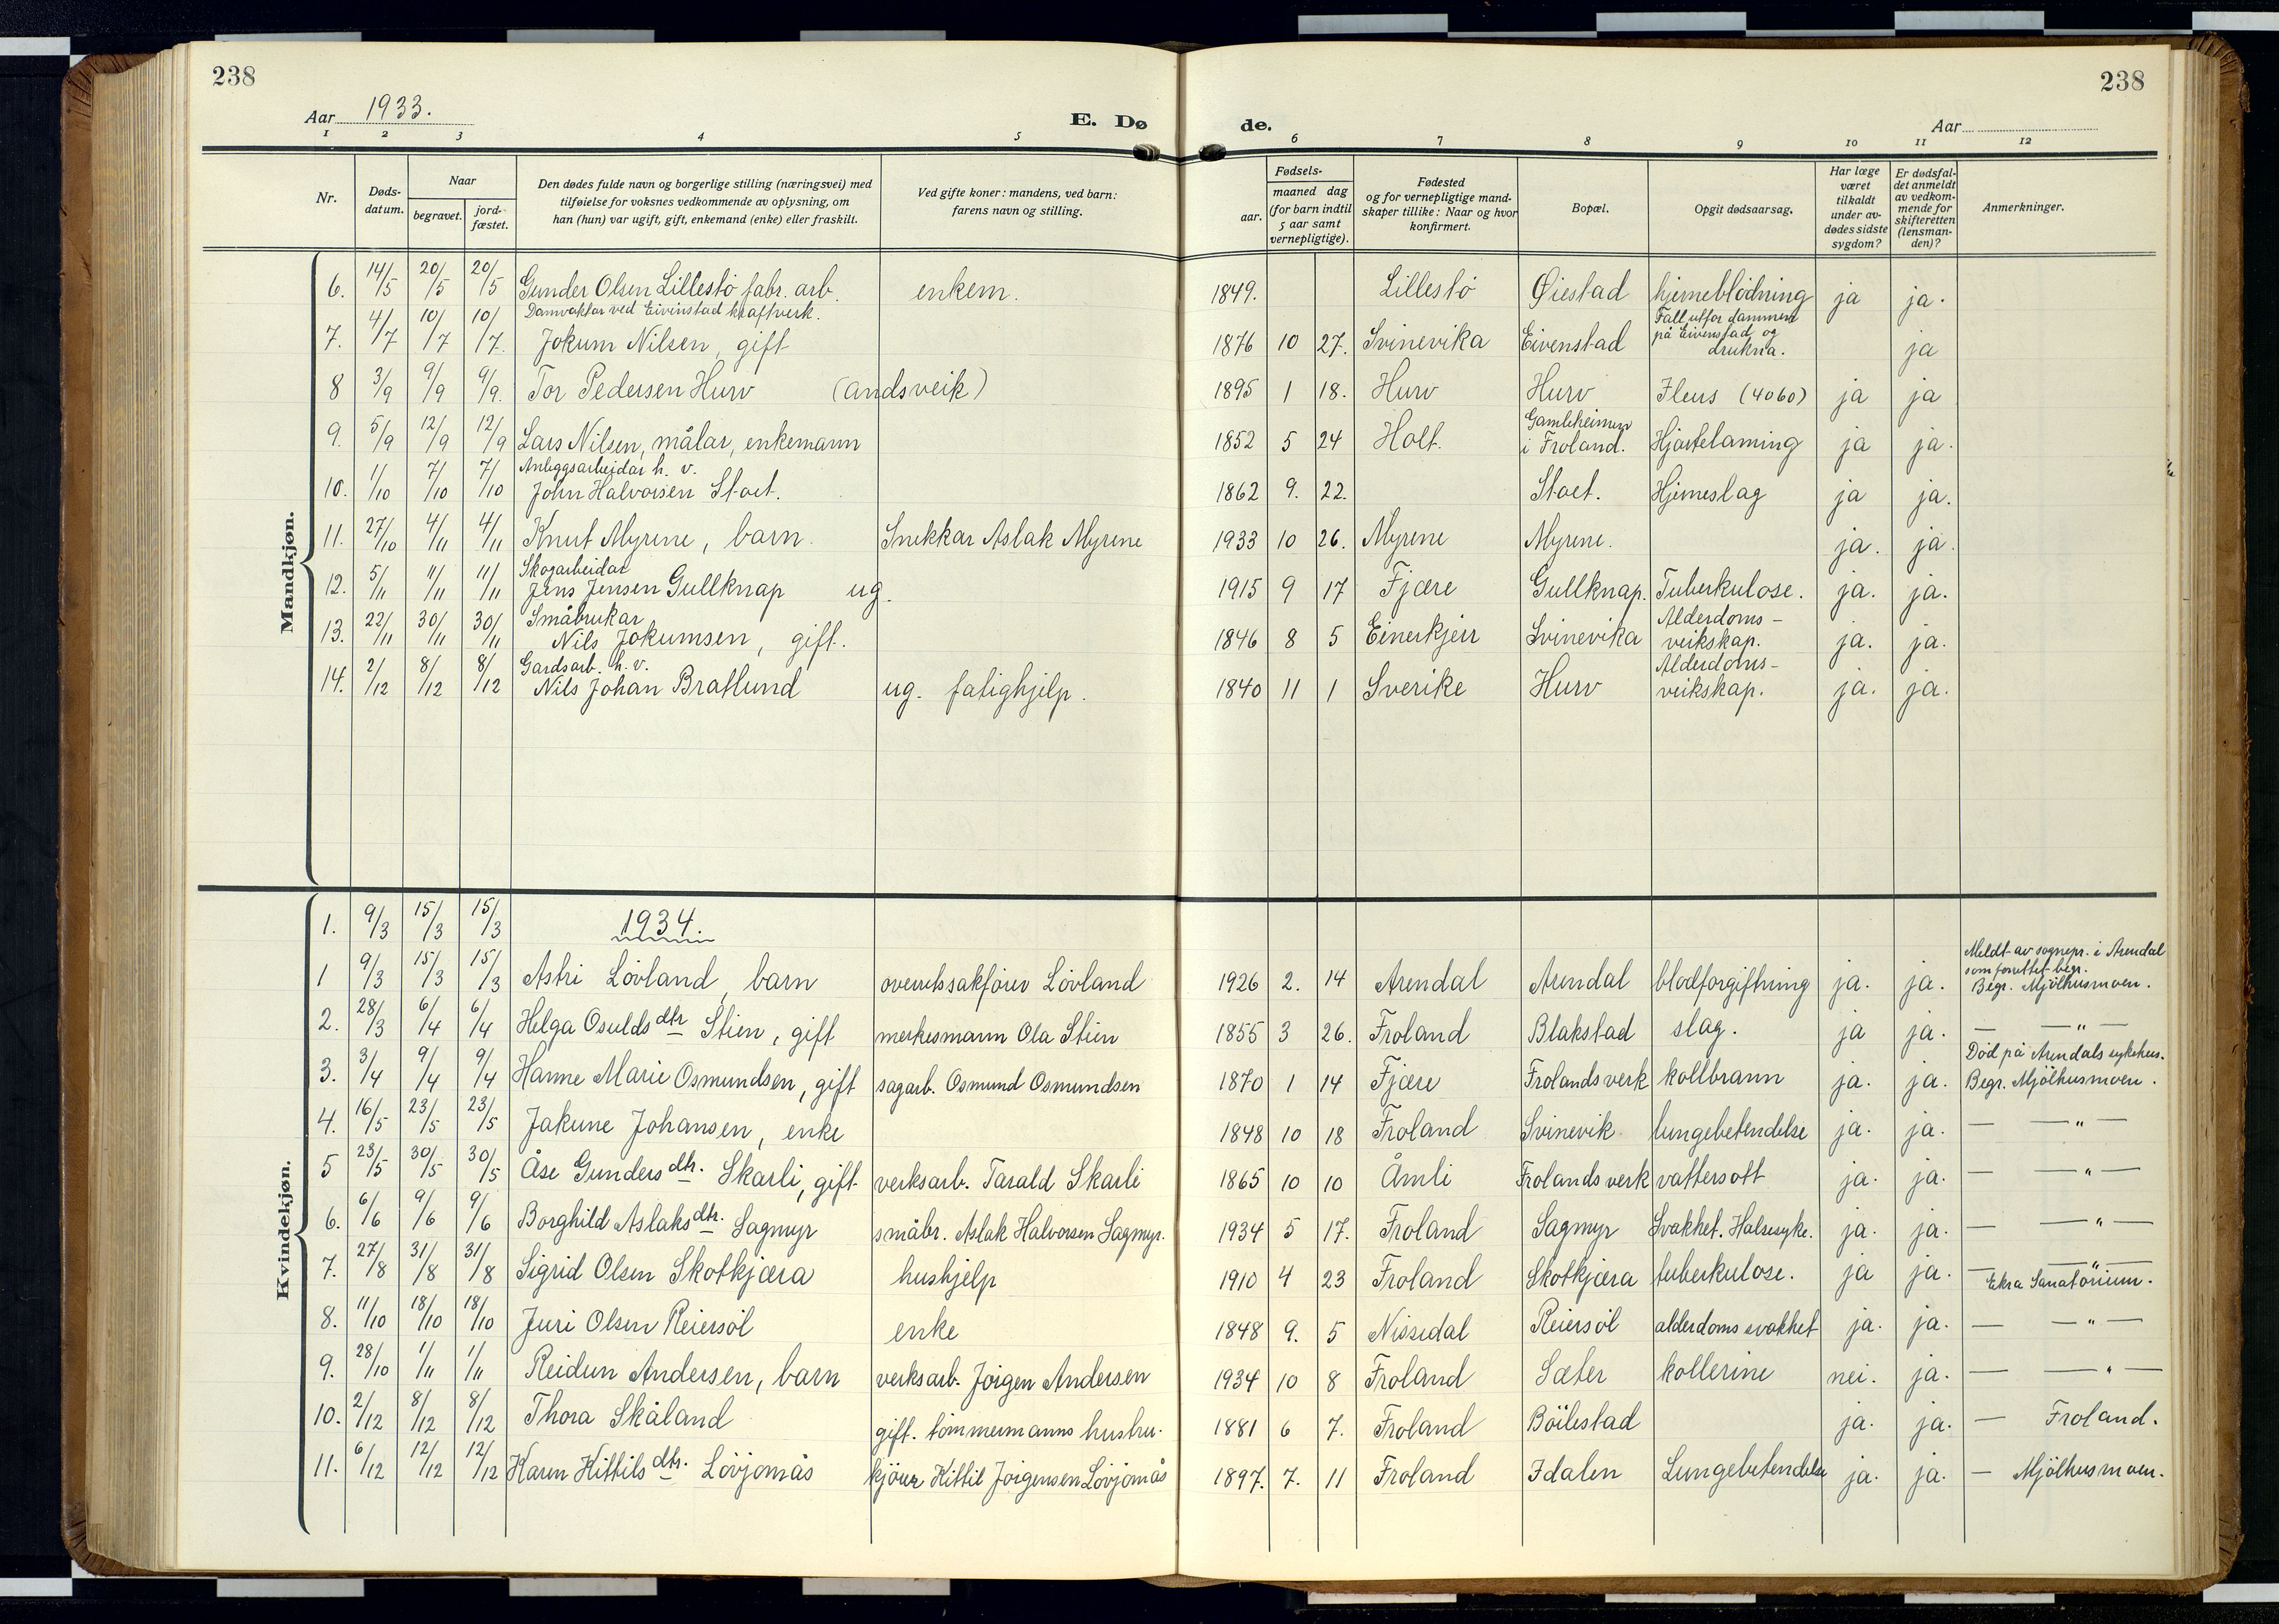 238
238
Aar 1933.
E. Dø
de.
Aar
1 2 3 4 5 6 7 8 9 10 11 12
Nr.
Døds-
datum.
Naar
begravet.
jord-
fæstet.
Den dødes fulde navn og borgerlige stilling (næringsvei) med
tilføielse for voksnes vedkommende av oplysning, om
han (hun) var ugift, gift, enkemand (enke) eller fraskilt.
Ved gifte koner: mandens, ved barn:
farens navn og stilling.
Fødsels-
aar.
maaned dag
(for barn indtil
5 aar samt
vernepligtige).
Fødested
og for vernepligtige mand-
skaper tillike: Naar og hvor
konfirmert.
Bopæl.
Opgit dødsaarsag.
Har læge
været
tilkaldt
under av-
dødes sidste
sygdom?
Er dødsfal-
det anmeldt
av vedkom-
mende for
skifteretten
(lensman-
den)?
Anmerkninger.
Mandkjøn.
6. 14/5 20/5 20/5 Gunder Olsen Lillestö fabr. arb. enkem. 1849. Lillestö Øiestad hjerneblödning ja ja.
Damvaktar ved Eivinstad kraftverk. Fall utfor dammen
7. 4/7 10/7 10/7. Jokum Nilsen, gift 1876 10 27. Svinevika Eivenstad på Eivenstad og ja
drukna.
8 3/9 9/9 9/9. Tor Pedersen Hurv (andsveik) 1895 1 18. Hurv Hurv Ileus (4060) ja ja
Gamleheimen
9. 5/9 12/9 12/9 Lars Nilsen, målar, enkemann 1852 5 24 Holt. i Froland. Hjartelaming ja ja.
Anleggsarbeidar h. v.
10. 1/10 7/10 7/10 John Halvorsen Stoet. 1862 9. 22. Stoet. Hjerneslag ja ja.
11. 27/10 4/11 4/11 Knut Myrene, barn. Snekkar Aslak Myrene 1933 10 26. Myrene Myrene. ja. ja.
Skogarbeidar
12. 5/11 11/11 11/11 Jens Jensen Gullknap ug. 1915 9 17 Fjære Gullknap. Tuberkulose. ja. ja.
Småbrukar Alderdoms-
13. 22/11 30/11 30/11 Nils Jokumsen, gift. 1846 8 5 Einerkjerr Svinevika veikskap. ja. ja.
Gardsarb. h. v. Alderdoms-
14. 2/12 8/12 8/12 Nils Johan Bratlund ug. fatighjelp. 1840 11 1 Sverike Hurv veikskap. ja. ja.
Kvindekjøn.
1. 9/3 15/3 15/3 1934.
Meldt av sognepr. i Arendal
som forrettet begr.
1 9/3 15/3 15/3 Astri Lövland, barn overretssakförer Lövland 1926 2. 14 Arendal Arendal blodforgiftning ja. ja. Begr. Mjölhusmoen.
2. 28/3 6/4 6/4 Helga Osuldsdtr Stien, gift merkesmann Ola Stien 1855 3 26. Froland Blakstad slag. ja ja. — — " —
Död på Arendals sykehus.
3. 3/4 9/4 9/4 Hanne Marie Osmundsen, gift sagarb. Osmund Osmundsen 1870 1 14 Fjære Frolands verk kollbrann ja. ja. Begr. Mjölhusmoen.
4. 16/5 23/5 23/5 Jakune Johansen, enke 1848 10 18 Froland Svinevik lungebetendelse ja. ja. — — " —
5 23/5 30/5 30/5 Åse Gundersdtr. Skarli, gift verksarb. Tarald Skarli 1865 10 10 Åmli Frolands verk vattersott ja. ja. — — " —
6. 6/6 9/6 9/6 Borghild Aslaksdtr. Sagmyr småbr. Aslak Halvorsen Sagmyr. 1934 5 17. Froland Sagmyr Svakhet. Halsesyke. ja. ja. — — " —
7. 27/8 31/8 31/8 Sigrid Olsen Skotkjæra hushjelp 1910 4 23 Froland Skotkjæra tuberkulose. ja ja. — — " —
Ekra Sanatorium.
8. 11/10 18/10 18/10 Juri Olsen Reiersöl enke 1848 9. 5 Nissedal Reiersöl alderdoms svakhet ja. ja. — — " —
9. 28/10 1/11 1/11 Reidun Andersen, barn verksarb. Jörgen Andersen 1934 10 8 Froland Sæter kollerine nei. ja. — — " —
10. 2/12 8/12 8/12 Thora Skåland gift. tömmermanns hustru. 1881 6 7. Froland Böilestad ja. ja. — Froland.
11. 6/12 12/12 12/12 Karen Kittilsdtr. Lövjomås kjörer Kittil Jörgensen Lövjomås 1897. 7. 11 Froland Idalen Lungebetendelse ja. ja. — Mjölhusmoen.